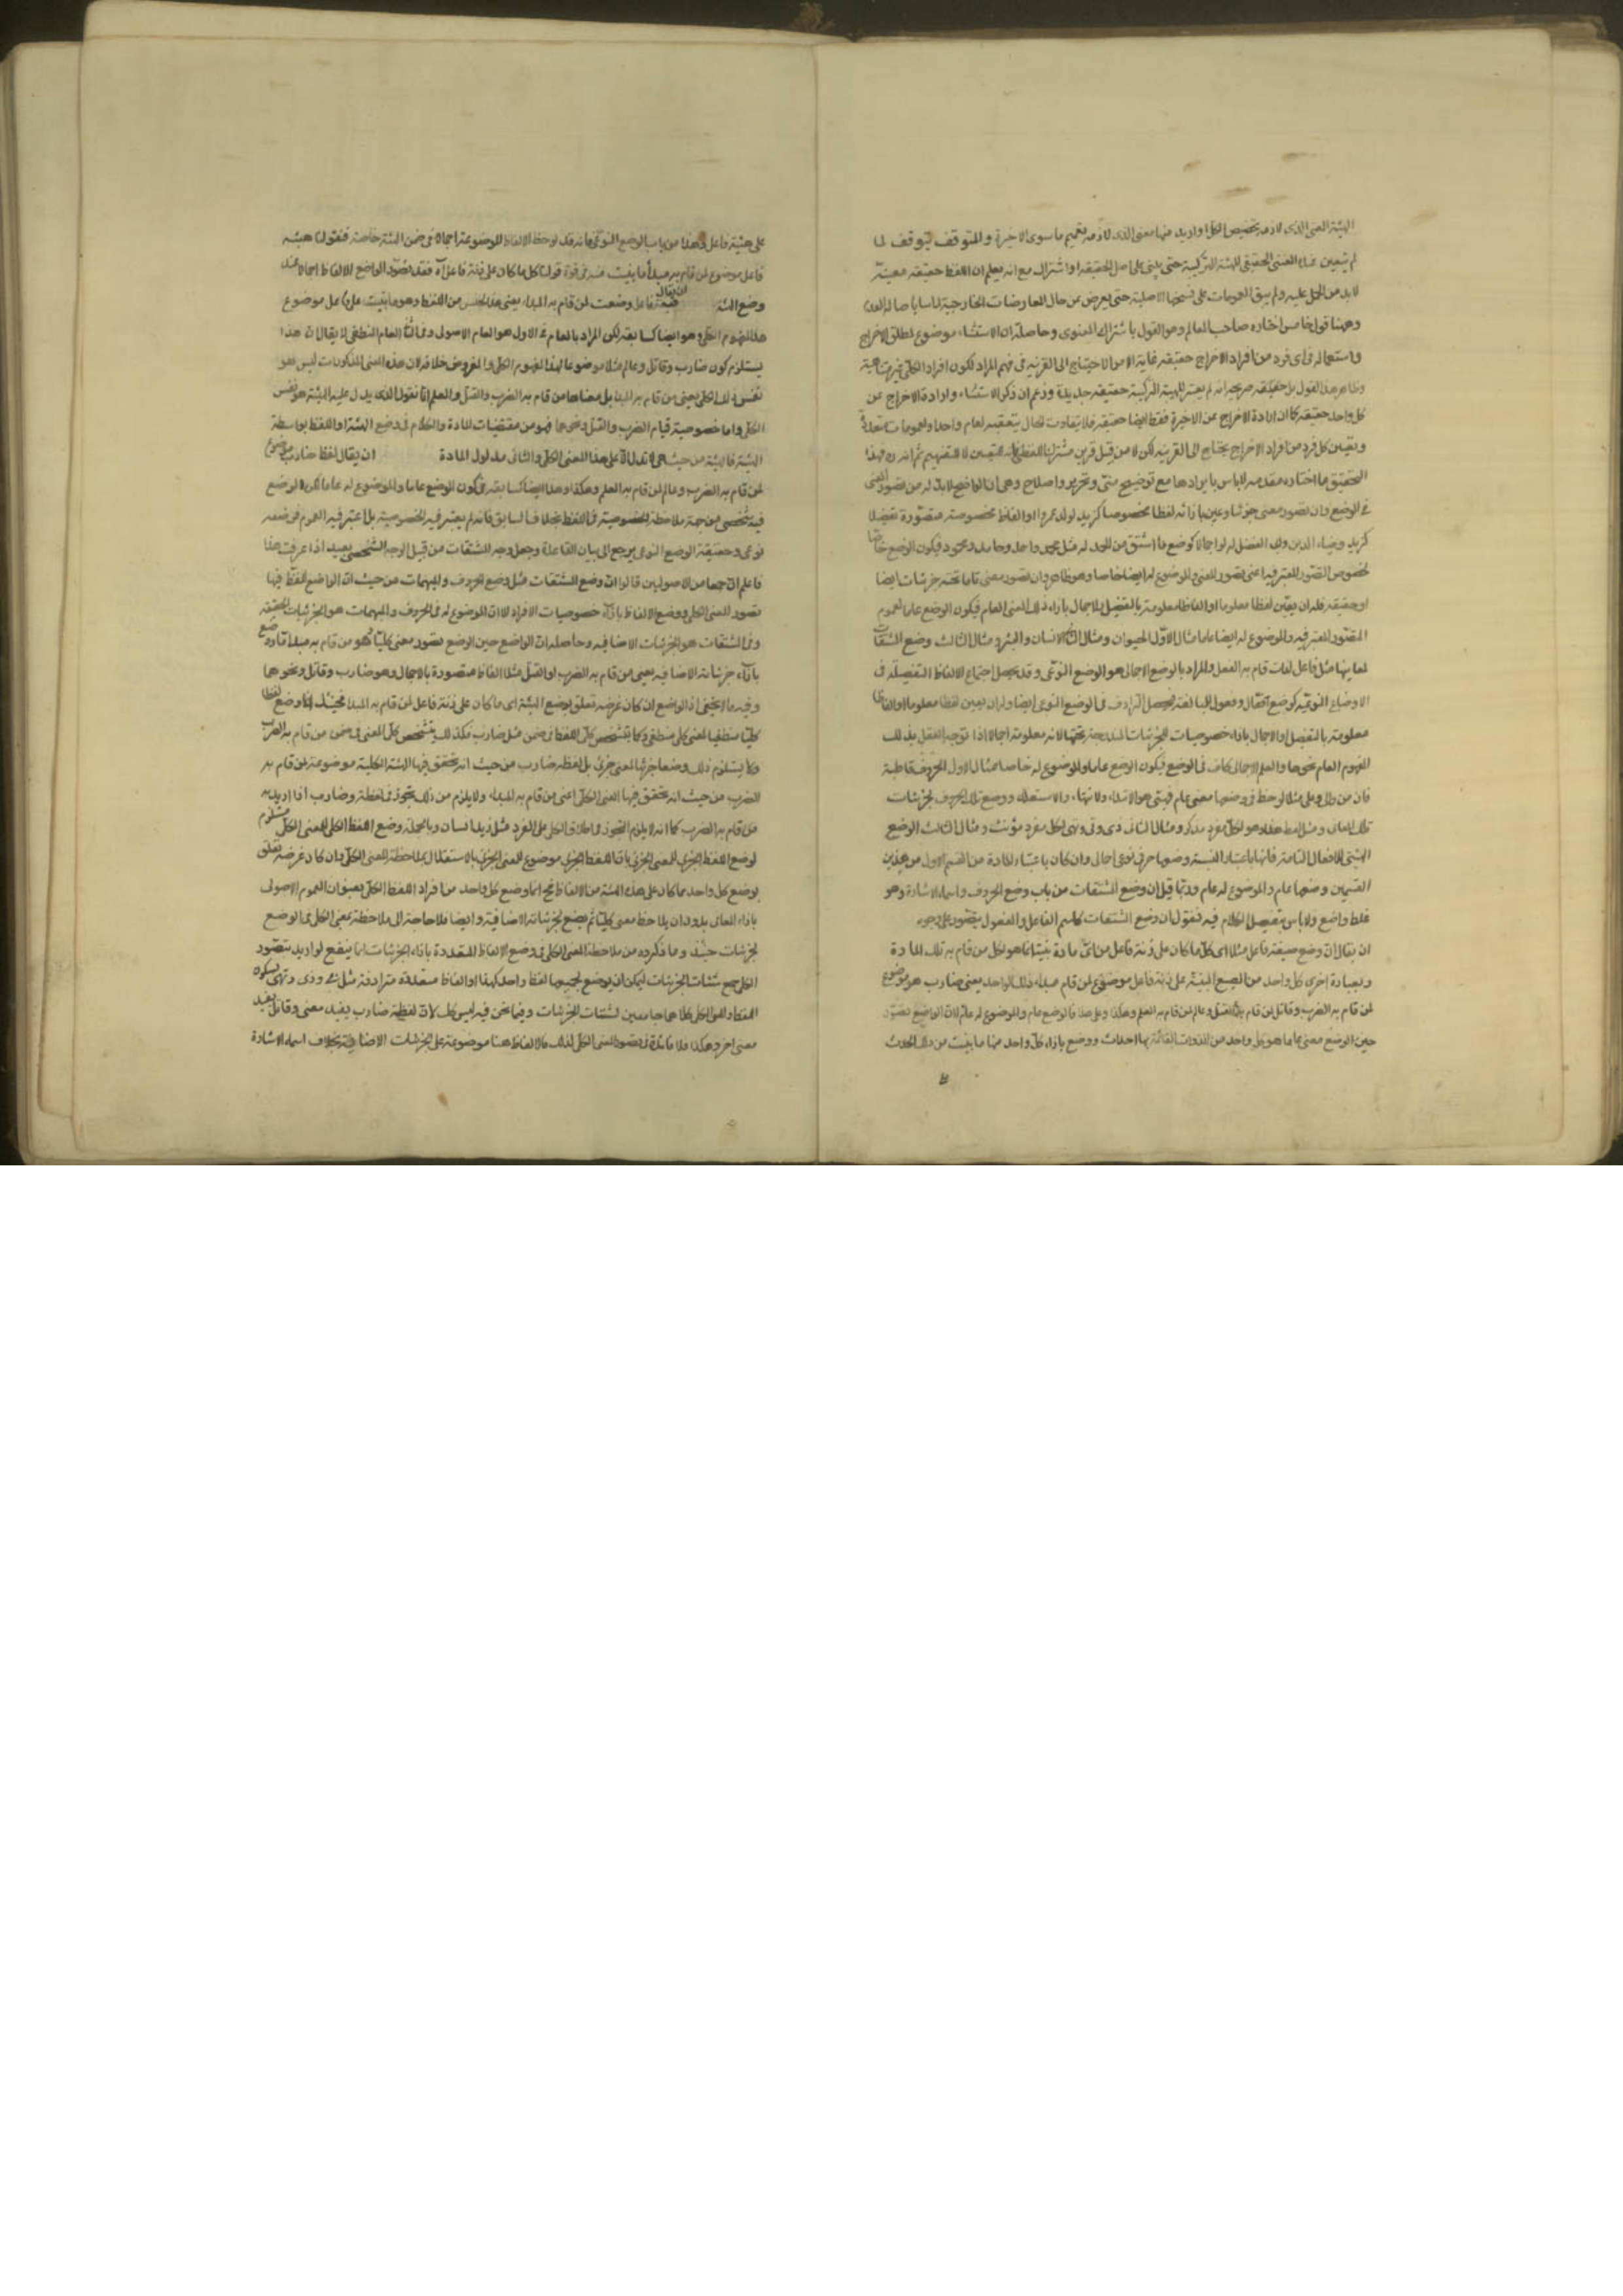 الهيئة المعنى الذى لازمه تخصيص الكل او اريد منها معنى الذى لازمه تعميم ما سوى الاخيرة والمتوقف يتوقف لما
لم يتعين عنده المعنى الحقيقى للهيئة التركيبية حتى يبنى على اصل الحقيقة او اشتراك مع انه يعلم ان اللفظ حقيقة معينة
لابد من الحمل عليه ولم يبق العمومات على قسمها الاصلية حتى يعرض عن حال المعارضات الخارجية
وههنا قول خامس اختاره صاحب المعالم وهو القول باشتراك المعنوى وحاصله ان الاستثناء موضوع لمطلق الاخراج
واستعماله فى اى فرد من افراد الاخراج حقيقة غاية الامر الاحتياج الى القرينة فى فهم المراد لكون افراد الكلى غير متناهية
وظاهر هذا القول بل حقيقته صريحه انه لم يعتبر للهيئة التركيبية حقيقة جديدة وزعم ان ذكر الاستثناء وارادة الاخراج عن
كل واحد حقيقة كما ان ارادة الاخراج عن الاخيرة فقط ايضا حقيقة فلا يتفاوت الحال بتعقبه لعام واحد او لعمومات متعددة
وتعيين كل فرد من افراد الاخراج يحتاج الى القرينة لكن لا من قبيل قرينة مشترك اللفظى لانه للتعيين لا للتفهيم ثم انه ره مهد لهذا
التحقيق ما اختاره مقدمة لا باس بايرادها مع توضيح منى وتحرير واصلاح وهى ان الواضع لابد له من تصور المعنى
فى الوضع فان تصور معنى جزئيا وعين بازائه لفظا مخصوصا كزيد لولد عمرو او الفاظا مخصوصة متصورة تفصيلا
كزيد وضياء الدين وابى الفضل له او اجمالا كوضع ما اشتق من الحمد له مثل محمد واحمد وحامد ومحمود فيكون الوضع خاصا
لخصوص التصور المعتبر فيه اعنى تصور المعنى والموضوع له ايضا خاصا وهو ظاهر وان تصور معنى عاما تحته جزئيات اضافية
او حقيقية فله ان يعين لفظا معلوما او الفاظا معلومة بالتفصيل او الاجمال بازاء ذلك المعنى العام فيكون الوضع عاما لعموم
التصور المعتبر فيه والموضوع له ايضا عاما مثال الاول الحيوان ومثال الثانى الانسان والبشر ومثال الثالث وضع المشتقات
لمعانيها مثل فاعل لذات قام به الفعل والمراد بالوضع الاجمالى هو الوضع النوعى وقد يحصل اجتماع الالفاظ التفصيلة فى
الاوضاع النوعية كوضع فعال وفعول للمبالغة فيحصل الترادف فى الوضع النوعى ايضا وله ان يعين لفظا معلوما او الفاظا
معلومة بالتفصيل او الاجمال بازاء خصوصيات الجزئيات المندرجة تحتها لانه معلومة اجمالا اذا توجه العقل بذلك
المفهوم العام نحوها والعلم الاجمالى كاف فى الوضع فيكون الوضع عاما والموضوع له خاصا مثال الاول الحروف قاطبة
فان من والى وعلى مثلا لوحظ فى وضعها معنى عام نسبتى هو الابتداء والانتهاء والاستعلاء ووضع تلك الحروف لجزئيات
تلك المعانى ومثل لفظ هذا وهو لكل مفرد مذكر ومثال الثانى ذى وتى وتهى لكل مفرد مؤنث ومثال الثالث الوضع
الهيئتى للافعال التامة فانها باعتبار النسبة وضعها حرفى نوعى اجمالى وان كان باعتبار المادة من القسم الاول من هذين
القسمين وضعها عام والموضوع له عام وربما قيل ان وضع المشتقات من باب وضع الحروف واسماء الاشارة وهو
غلط واضح ولا باس بتفصيل الكلام فيه فنقول ان وضع المشتقات كاسم الفاعل والمفعول يتصور على وجوه
ان يقال ان وضع صيغة فاعل مثلا اى كل ما كان على زنة فاعل من اى مادة بنيت انما هو لكل من قام به تلك المادة
وبعبارة اخرى كل واحد من الصيغ المبنية على زنة فاعل موضوع لمن قام مبداء ذلك الواحد يعنى ضارب هو موضوع
لمن قام به الضرب وقاتل لمن قام به القتل وعالم لمن قام به العلم وهكذا وعلى هذا فالوضع عام والموضوع له عام لان الواضع تصور
حين الوضع معنى عاما هو كل واحد من الذوات القائمة بها احداث ووضع بازاء كل واحد منها ما بنيت من ذلك الحدث
على هيئة فاعل وهذا من باب الوضع النوعى فانه قد لوحظ الالفاظ الموضوعة اجمالا فى ضمن الهيئة خاصة فنقولنا هيئة
فاعل موضوع لمن قام به مبدأ ما بنيت منه فى قوة قولنا كل ما كان على زنة فاعل آه فقد تصور الواضع للالفاظ اجمالا عند
وضع الهيئة ان يقال هيئة فاعل وضعت لمن قام به المبداء يعنى هذا الجنس من اللفظ وهو ما بنيت على فاعل موضوع
هذا المفهوم الكلى وهو ايضا كسابقه لكن المراد بالعام فى الاول هو العام الاصولى وفى الثانى العام المنطقى لا يقال ان هذا
يستلزم كون ضارب وقاتل وعالم مثلا موضوعا لهذا المفهوم الكلى والمفروض خلافه لان هذه المعنى المذكورات ليس هو
نفس ذلك الكلى يعنى من قام به المبدا بل معناها من قام به الضرب والقتل والعلم لانا نقول الذى يدل عليه الهيئة هو نفس
الكلى واما خصوصية قيام الضرب والقتل ونحوها فهو من مقتضيات المادة والكلام فى وضع الهيئة او اللفظ بواسطة
الهيئة فالهيئة من حيث هى لا تدل الا على هذا المعنى الكلى والثانى مدلول المادة ان يقال لفظ ضارب موضوع
لمن قام به الضرب وعالم لمن قام به العلم وهكذا وهذا ايضا كسابقه فى كون الوضع عاما والموضوع له عاما لكن الوضع
فيه شخصى من جهة ملاحظة الخصوصية فى اللفظ بخلاف السابق فانه لم يعتبر فيه الخصوصية بل اعتبر فيه العموم فى ضمنه
نوعى وحقيقة الوضع النوعى يرجع الى بيان القاعدة وجعل وجه المشتقات من قبيل الوجه الشخصى بعيد اذا عرفت هذا
فاعلم ان جمعا من الاصوليين قالوا ان وضع المشتقات مثل وضع الحروف والمبهمات من حيث ان الواضع اللفظ فيها
تصور المعنى الكلى ووضع الالفاظ بازاء خصوصيات الافراد الا ان الموضوع له فى الحروف والمبهمات هو الجزئيات الحقيقية
وفى المشتقات هو الجزئيات الاضافيه وحاصله ان الواضع حين الوضع تصور معنى كليا وهو من قام به مبدأ ما ووضع
بازاء جزئياته الاضافية يعنى من قام به الضرب او القتل مثلا الفاظا متصورة بالاجمال وهو ضارب وقاتل ونحوها
وفيه ما لا يخفى اذ الواضع ان كان غرضه تعلق بوضع الهيئة اى ما كان على زنة فاعل لمن قام به المبداء فحينئذ انما وضع لفظا
كليا منطقيا لمعنى كلى منطقى وكما يتشخص كلى اللفظ فى ضمن مثل ضارب فكذلك يتشخص كلى المعنى فى ضمن من قام به الضرب
ولا يستلزم ذلك وضعا جزئيا لمعنى جزئى بل لفظه ضارب من حيث انه تحقق فيها الهيئة الكلية موضوعة لمن قام به
الضرب من حيث انه تحقق فيها المعنى الكلى اعنى من قام به المبداء ولا يلزم من ذلك تجوز فى لفظة وضارب اذا اريد به
من قام به الضرب كما انه لا يلزم التجوز فى اطلاق الكلى على الفرد مثل زيد انسان وبالجملة وضع اللفظ الكلى للمعنى الكلى مستلزم
لوضع اللفظ الجزئى للمعنى الجزئى لا ان اللفظ الجزئى موضوع للمعنى الجزئى بالاستقلال بملاحظة المعنى الكلى وان كان غرضه تعلق
بوضع كل واحد مما كان على هذه الهيئة من الالفاظ فح انما وضع كل واحد من افراد اللفظ الكلى بعنوان العموم الاصولى
بازاء المعانى بدون ان يلاحظ معنى كليا ثم يضع لجزئياته الاضافية وايضا فلا حاجة الى ملاحظة معنى الكلى فى الوضع
لجزئيات حينئذ وما ذكروه من ملاحظة المعنى الكلى فى وضع الالفاظ المتعددة بازاء الجزئيات انما ينفع لو اريد بتصور
الكلى جمع شتات الجزئيات ليمكن ان يوضع لجميعها لفظ واحد كهذا او الفاظ متعددة مترادفة مثل ذى وتى وتهى ليكون
اللفظ والمعنى الكلى كلاهما جامعين لشتات الجزئيات وفيما نحن فيه ليس كذلك لان لفظة ضارب يفيد معنى وقاتل يفيد
معنى اخر وهكذا فلا فائدة فى تصور المعنى الكلى لذلك فالالفاظ هنا موضوعة على الجزئيات الاضافية بخلاف اسماء الاشارة